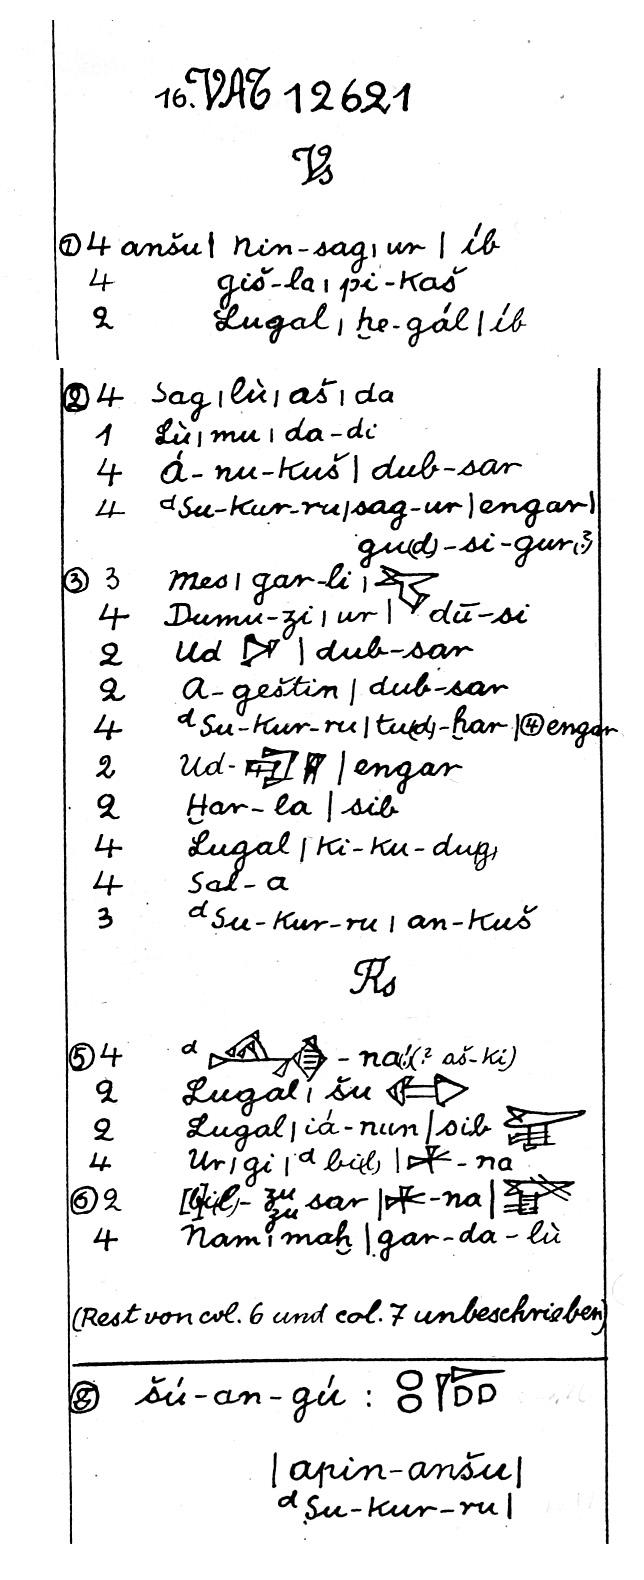 16. VAT 12621
Vs
① 4 anšu | nin-sag | ur | íb
4 giš-la | pi-kaš
2 Lugal | ḫe-gál | íb
② 4 Sag | lù | aš | da
1 Lù | mu | da-di
4 Á-nu-kuš | dub-sar
4 ᵈSu-kur-ru | sag-ur | engar |
gu(d)-si-gur(?)
③ 3 mes | gar-li |
4 Dumu-zi | ur | dū-si
2 Ud | dub-sar
2 A-geštin | dub-sar
4 ᵈSu-kur-ru | tu(d)-ḫar | ④ engar
2 Ud- | engar
2 Ḫar-la | sib
4 Lugal | ki-ku-dug
4 Sal-a
3 ᵈSu-kur-ru | an-kuš
Rs
⑤ 4 ᵈ -na!(? aš-ki)
2 Lugal | šu
2 Lugal | iá-nun | sib
4 Ur | gi | ᵈbil | -na
⑥ 2 zu zu sar | -na |
4 nam | maḫ | gar-da-lù
(Rest von col. 6 und col. 7 unbeschrieben)
⑧ šú-an-gú :
| apin-anšu |
ᵈSu-kur-ru |